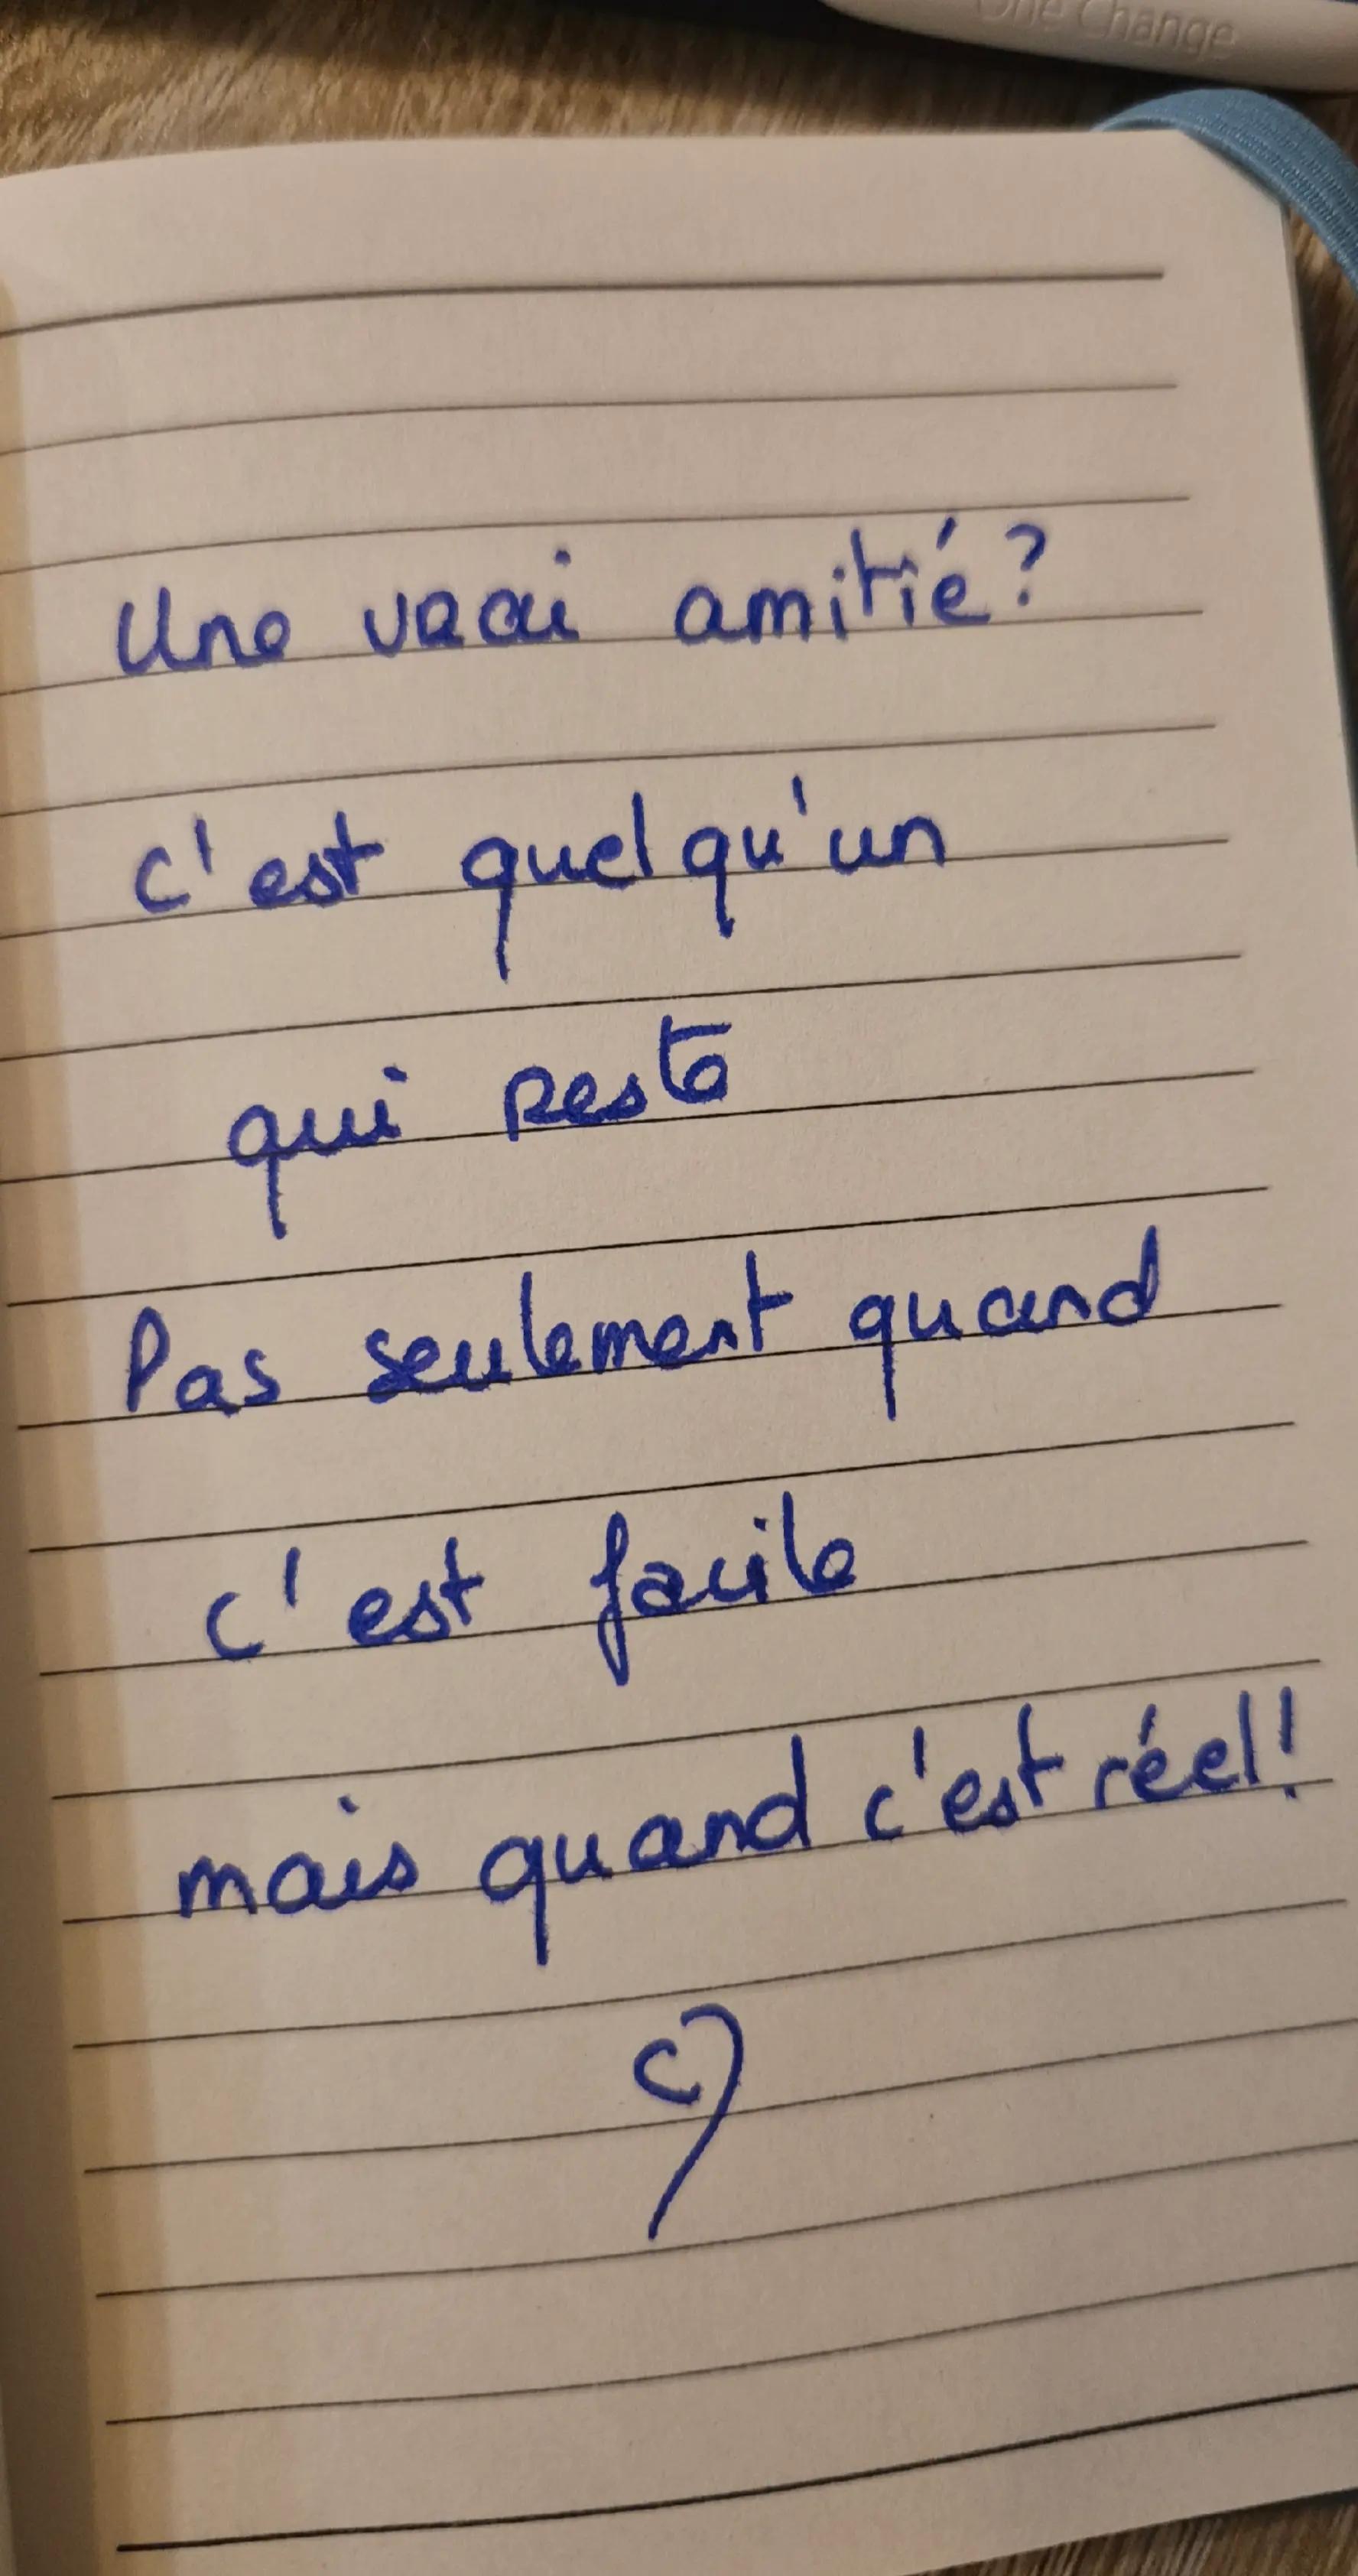 One Change
Une vrai amitié?
c'est quelqu'un
qui reste
Pas seulement quand
c'est facile
mais quand c'est réel!